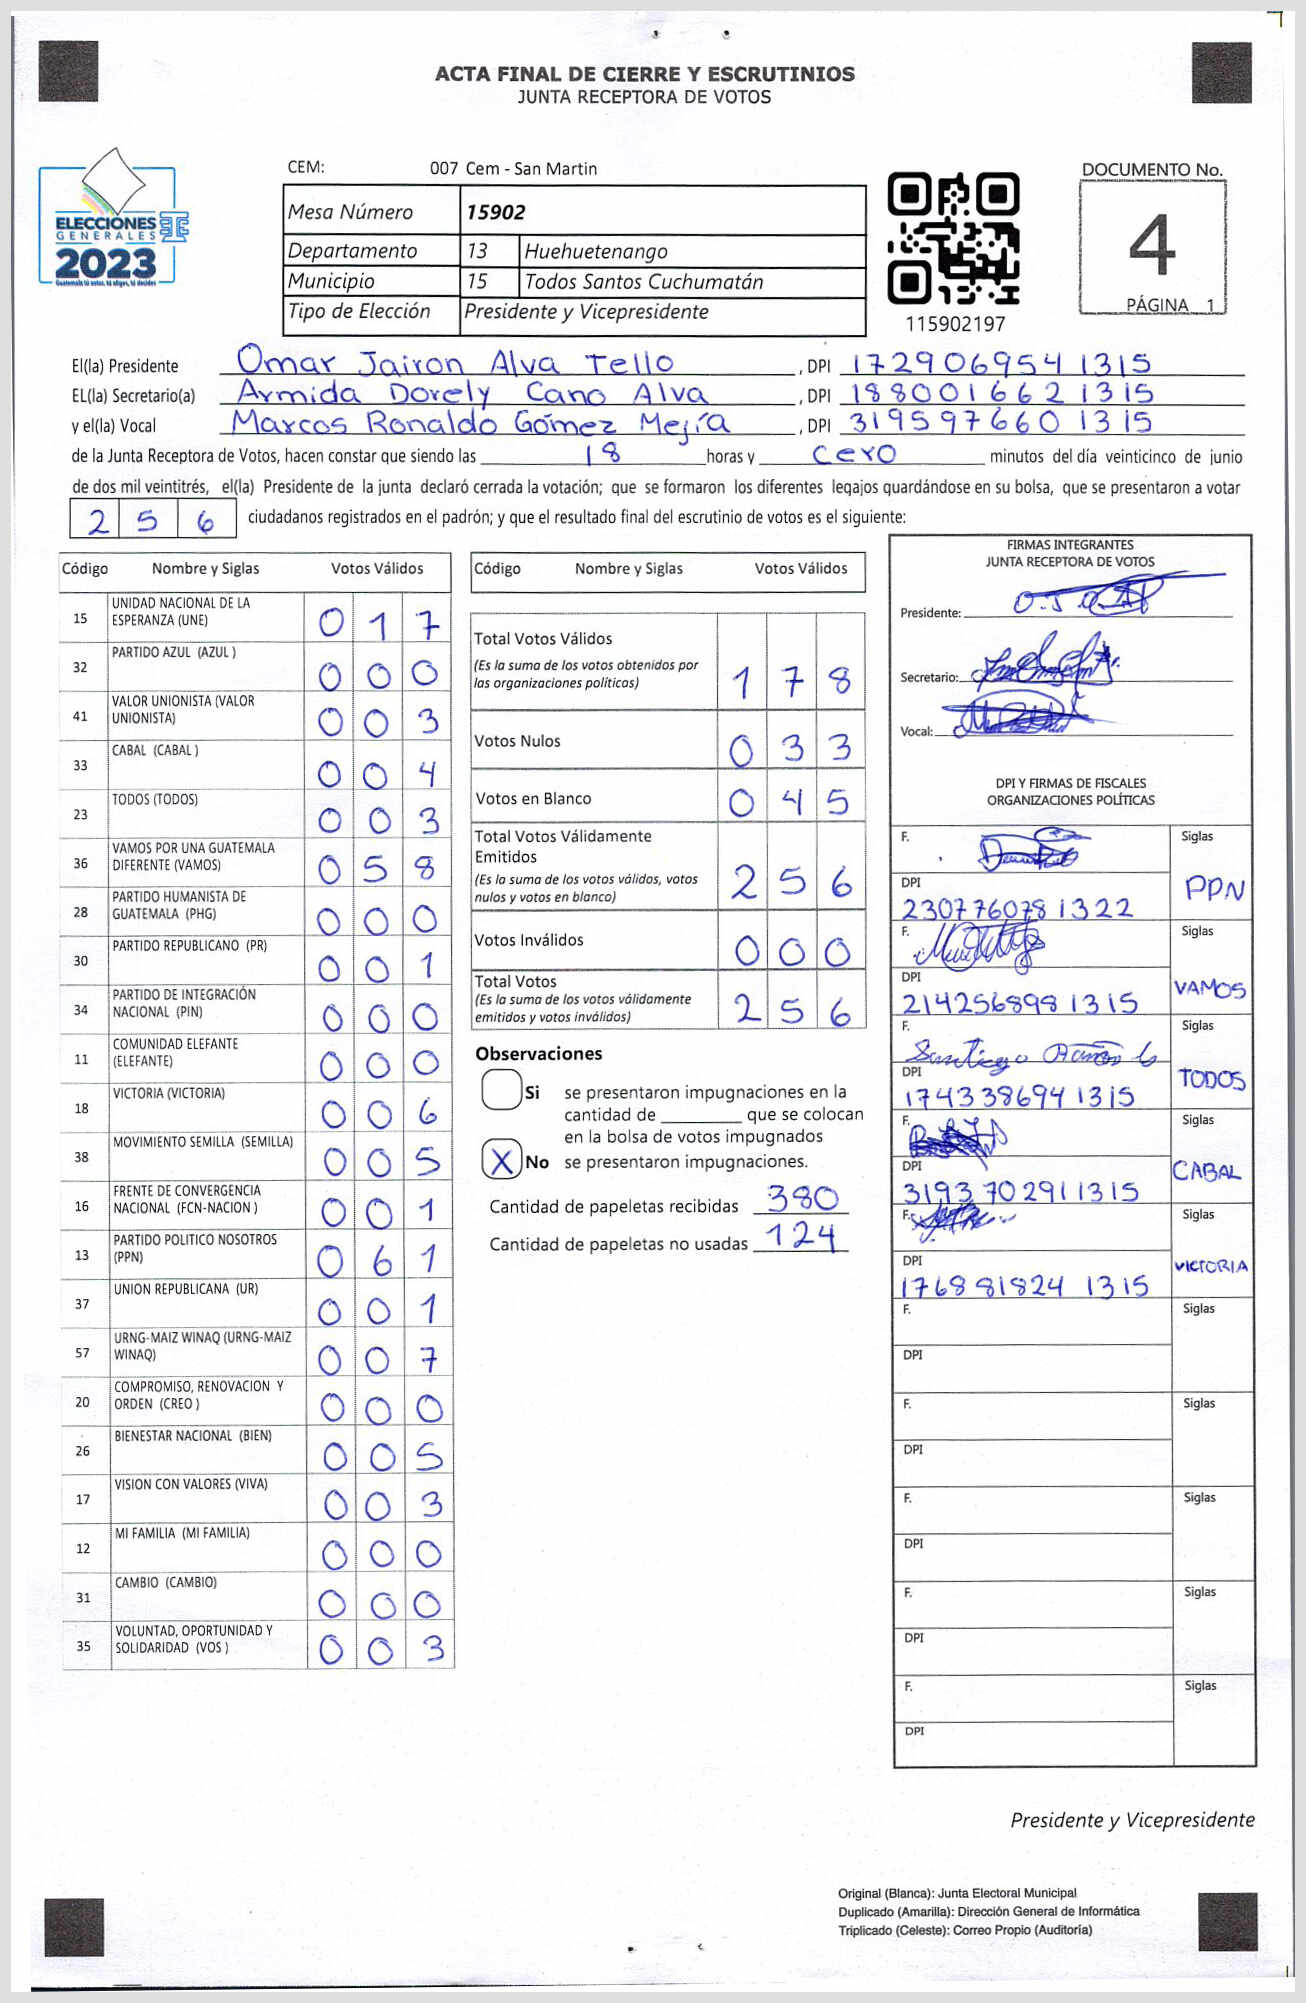 ACTA FINAL DE CIERRE Y ESCRUTINIOS
JUNTA RECEPTORA DE VOTOS
ELECCIONES
GENERALES
2023
Guatemala tú votas, tú eliges, tú decides
CEM: 007 Cem - San Martin
Mesa Número 15902
Departamento 13 Huehuetenango
Municipio 15 Todos Santos Cuchumatán
Tipo de Elección Presidente y Vicepresidente
115902197
DOCUMENTO No.
4
PÁGINA 1
El(la) Presidente Omar Jairon Alva Tello , DPI 1729069541315
EL(la) Secretario(a) Armida Dorely Cano Alva , DPI 1880016621315
y el(la) Vocal Marcos Ronaldo Gómez Mejía , DPI 3195976601315
de la Junta Receptora de Votos, hacen constar que siendo las 18 horas y cero minutos del día veinticinco de junio
de dos mil veintitrés, el(la) Presidente de la junta declaró cerrada la votación; que se formaron los diferentes legajos guardándose en su bolsa, que se presentaron a votar
256 ciudadanos registrados en el padrón; y que el resultado final del escrutinio de votos es el siguiente:
Código Nombre y Siglas Votos Válidos
15 UNIDAD NACIONAL DE LA
ESPERANZA (UNE) 017
32 PARTIDO AZUL (AZUL ) 000
41 VALOR UNIONISTA (VALOR
UNIONISTA) 003
33 CABAL (CABAL ) 004
23 TODOS (TODOS) 003
36 VAMOS POR UNA GUATEMALA
DIFERENTE (VAMOS) 058
28 PARTIDO HUMANISTA DE
GUATEMALA (PHG) 000
30 PARTIDO REPUBLICANO (PR) 001
34 PARTIDO DE INTEGRACIÓN
NACIONAL (PIN) 000
11 COMUNIDAD ELEFANTE
(ELEFANTE) 000
18 VICTORIA (VICTORIA) 006
38 MOVIMIENTO SEMILLA (SEMILLA) 005
16 FRENTE DE CONVERGENCIA
NACIONAL (FCN-NACION ) 001
13 PARTIDO POLITICO NOSOTROS
(PPN) 061
37 UNION REPUBLICANA (UR) 001
57 URNG-MAIZ WINAQ (URNG-MAIZ
WINAQ) 007
20 COMPROMISO, RENOVACION Y
ORDEN (CREO ) 000
26 BIENESTAR NACIONAL (BIEN) 005
17 VISION CON VALORES (VIVA) 003
12 MI FAMILIA (MI FAMILIA) 000
31 CAMBIO (CAMBIO) 000
35 VOLUNTAD, OPORTUNIDAD Y
SOLIDARIDAD (VOS ) 003
Código Nombre y Siglas Votos Válidos
Total Votos Válidos
(Es la suma de los votos obtenidos por
las organizaciones políticas) 178
Votos Nulos 033
Votos en Blanco 045
Total Votos Válidamente
Emitidos
(Es la suma de los votos válidos, votos
nulos y votos en blanco) 256
Votos Inválidos 000
Total Votos
(Es la suma de los votos válidamente
emitidos y votos inválidos) 256
Observaciones
Si se presentaron impugnaciones en la
cantidad de ________ que se colocan
en la bolsa de votos impugnados
X No se presentaron impugnaciones.
Cantidad de papeletas recibidas 380
Cantidad de papeletas no usadas 124
FIRMAS INTEGRANTES
JUNTA RECEPTORA DE VOTOS
Presidente:
Secretario:
Vocal:
DPI Y FIRMAS DE FISCALES
ORGANIZACIONES POLÍTICAS
F. Siglas
PPN
DPI
2307760781322
F. Siglas
VAMOS
DPI
2142568981315
F. Santiago Siglas
TODOS
DPI
1743386941315
F. Siglas
CABAL
DPI
3193702911315
F. Siglas
VICTORIA
DPI
1768818241315
F. Siglas
DPI
F. Siglas
DPI
F. Siglas
DPI
F. Siglas
DPI
F. Siglas
DPI
Presidente y Vicepresidente
Original (Blanca): Junta Electoral Municipal
Duplicado (Amarilla): Dirección General de Informática
Triplicado (Celeste): Correo Propio (Auditoría)